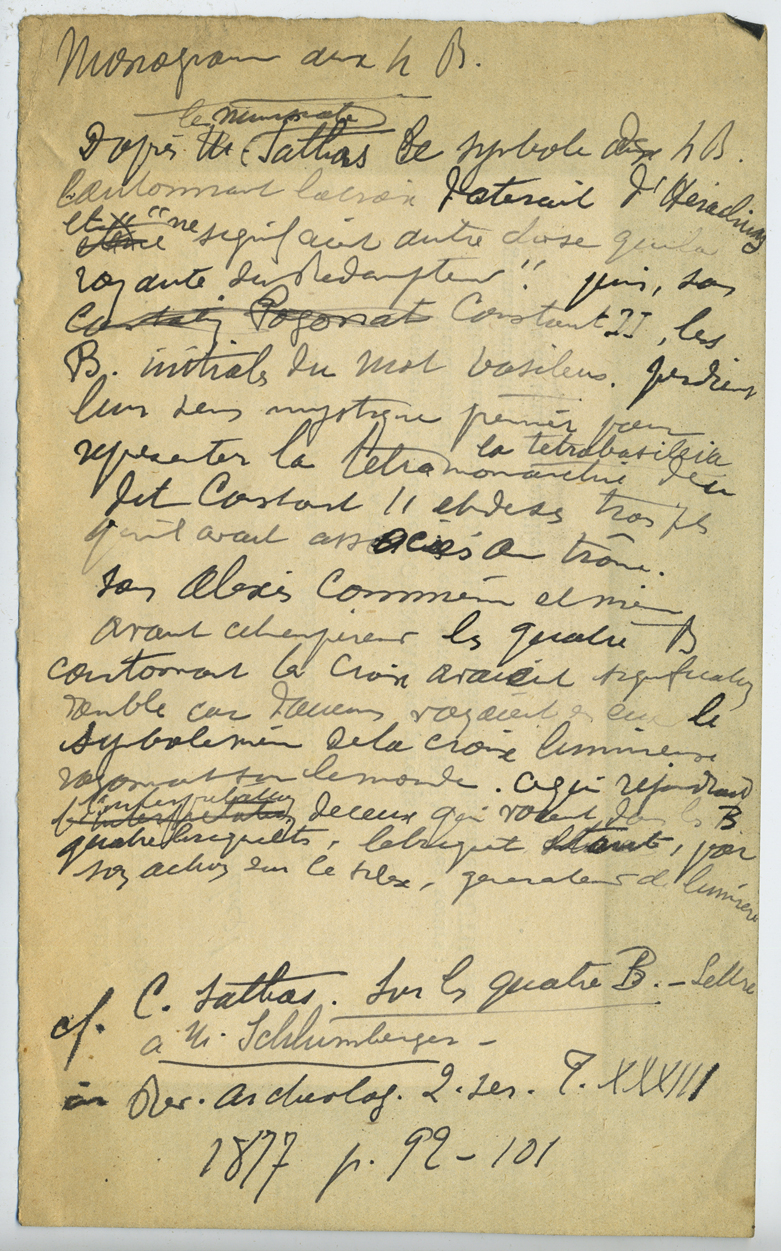 Monogramme aux 4 B.
le numismate
D'après M. Sathas le symbole aux 4 B.
Cantonnant la croix daterait d'Heraclius
et "ne signifiait autre chose que la
royauté du Redempteur"! puis, sous
Constantin Pogonat Constant II, les
B. initiales du mot basileus. perdirent
leur sens mystique premier pour
la tetrabasileia
representer la tetramonarchie du
dit Constant II et de ses trois fils
qu'il avait associés au trône.
Sous Alexis Comnène et même
avant cet empereur les quatre B
cantonnant la Croix avaient signification
double car d'aucuns voyaient en eux le
symbole même de la croix lumineuse
rayonnant sur le monde. ce qui rejoindrait
l'interpretation
l'interpretation de ceux qui voient dans les B
quatre briquets, le briquet étant, par
son action sur le silex, generateur de lumière
cf. C. Sathas. Sur les quatre B. - Lettre
a M. Schlumberger -
in Rev. Archeolog. 2. ser. T. XXXIII
1877 p. 92-101